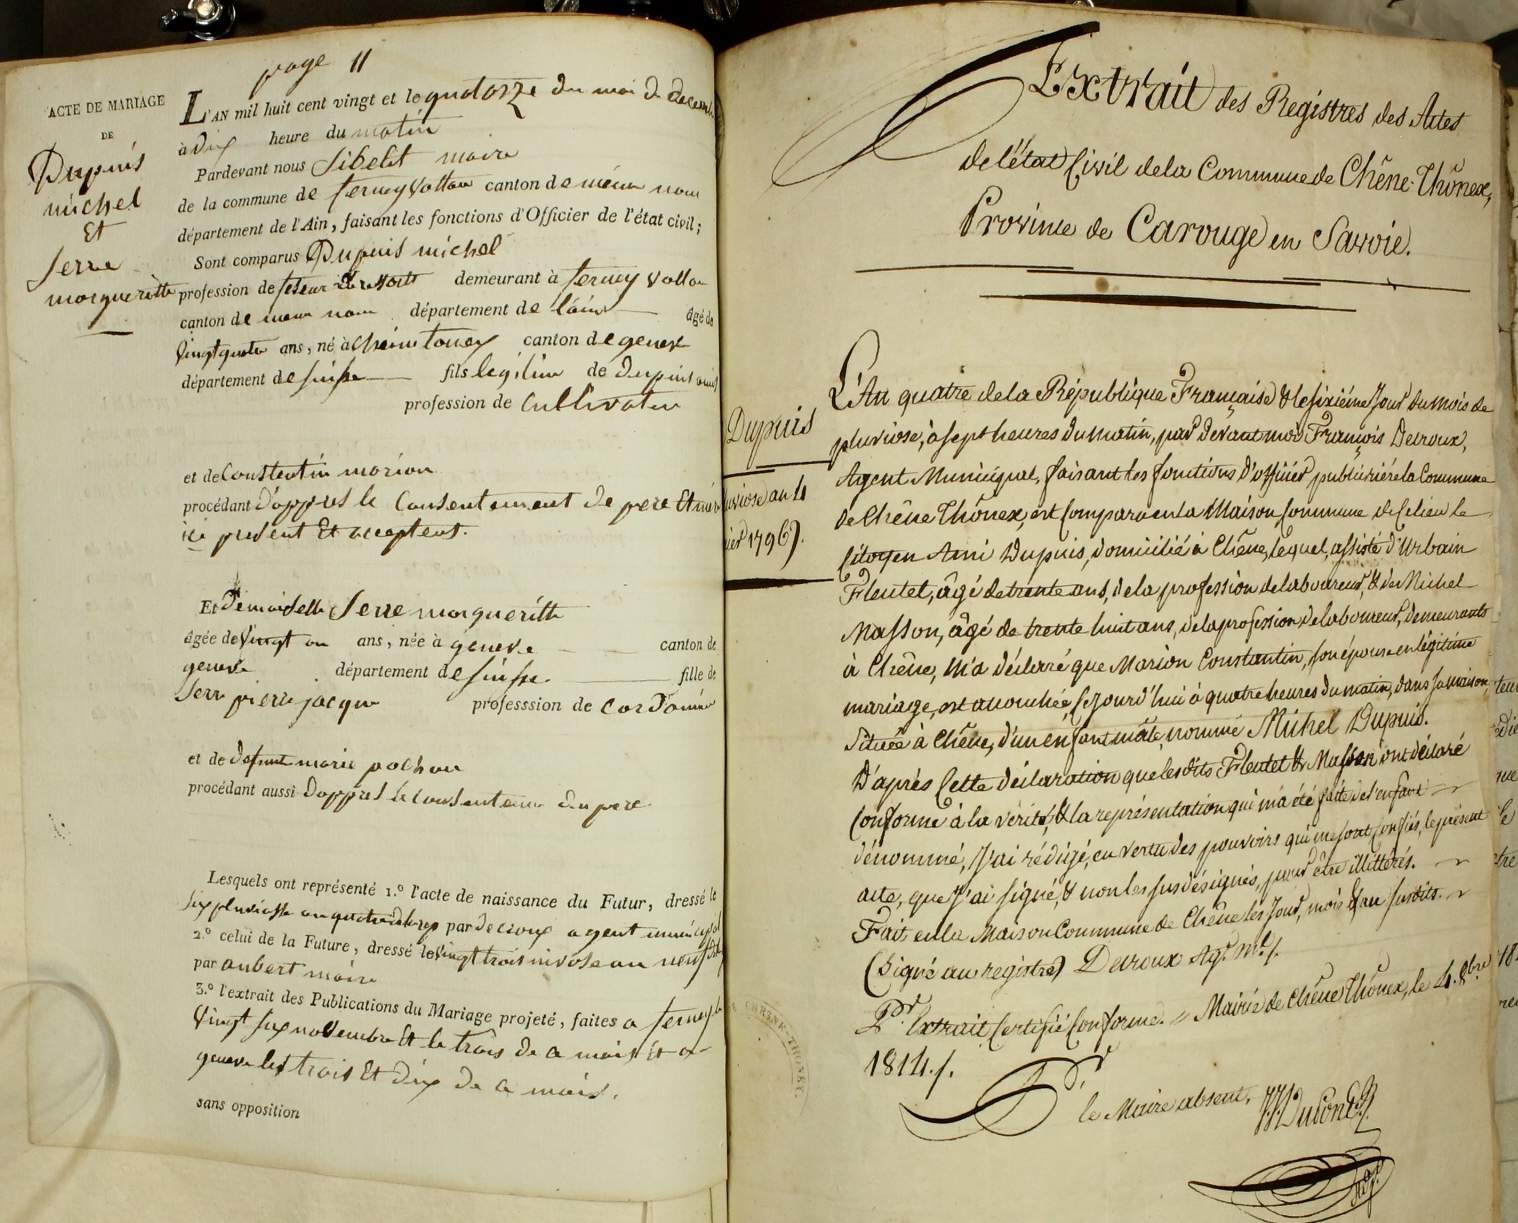 page 11
ACTE DE MARIAGE
DE
Dupuis
michel
Et
Serre
margueritte
L'AN mil huit cent vingt et le quatorze du mois de decemb
à dix heure du matin
Pardevant nous maire
de la commune de ferney voltaire canton de même nom
département de l'Ain, faisant les fonctions d'Officier de l'état civil;
Sont comparus Dupuis michel
profession de demeurant à ferney volta
canton de meme nom département de l'ain âgé de
Vingt quatre ans, né à chêne tonex canton de geneve
département de suisse fils légitime de dupuis ami
profession de Cultivateur
et de Constentin marion
procédant d'appres le Consentement de pere Et mer
ici present Et acceptent.
Et demoiselle Serre margueritte
âgée de Vingt un ans, née à geneve canton de
geneve département de suisse fille de
Serre pierre jacque professsion de Cordonnier
et de defunte marie pochon
procédant aussi d'appres le consentemen du pere
Lesquels ont représenté 1.º l'acte de naissance du Futur, dressé le
six pluviosse an quatre par decroux agent municipal
2.º celui de la Future, dressé le Vingt trois nivose an neuf
par aubert maire
3.º l'extrait des Publications du Mariage projeté, faites a ferney le
Vingt six novembre Et le trois de ce mois Et a
geneve les trois Et dix de ce mois.
sans opposition
Extrait des Registres des Actes
de l'état Civil de la Commune de Chêne-Thônex,
Province de Carouge en Savoie.
Dupuis
uviose an 4
ier 1796).
L'An quatre de la République Française & le sixième jour du mois de
pluviose, à sept heures du matin, par devant moi François Decroux,
Agent Municipal, faisant les fonctions d'officier public rière la Commune
de Chêne Thônex, est comparu en la Maison Commune de ce lieu le
Citoyen Ami Dupuis, domicilié à Chêne, lequel, assisté d'Urbain
Fleutet, âgé de trente ans, de la profession de laboureur, & de Michel
Masson, âgé de trente huit ans, de la profession de laboureur, demeurants
à Chêne, m'a déclaré que Marion Constantin, son épouse en légitime
mariage, est accouchée, ce jourd'hui à quatre heures du matin, dans sa maison,
située à Chêne, d'un enfant mâle, nommé Michel Dupuis.
D'après cette déclaration que lesdits Fleutet & Masson ont déclaré
conforme à la vérité, & la représentation qui m'a été faite de l'enfant
dénommé, j'ai rédigé, en vertu des pouvoirs qui me sont confiés, le présent
acte, que j'ai signé, & non les susdésignés, pour être illittérés.
Fait en la Maison Commune de Chêne les jour, mois & an susdits.
(Signé au registre) Decroux Ag.t M.l /.
P.r Extrait certifié conforme. = Mairie de Chêne Thônex, le 4. 8bre
1814 /.
P.r le Maire absent,
CHÊNE-THONEX.